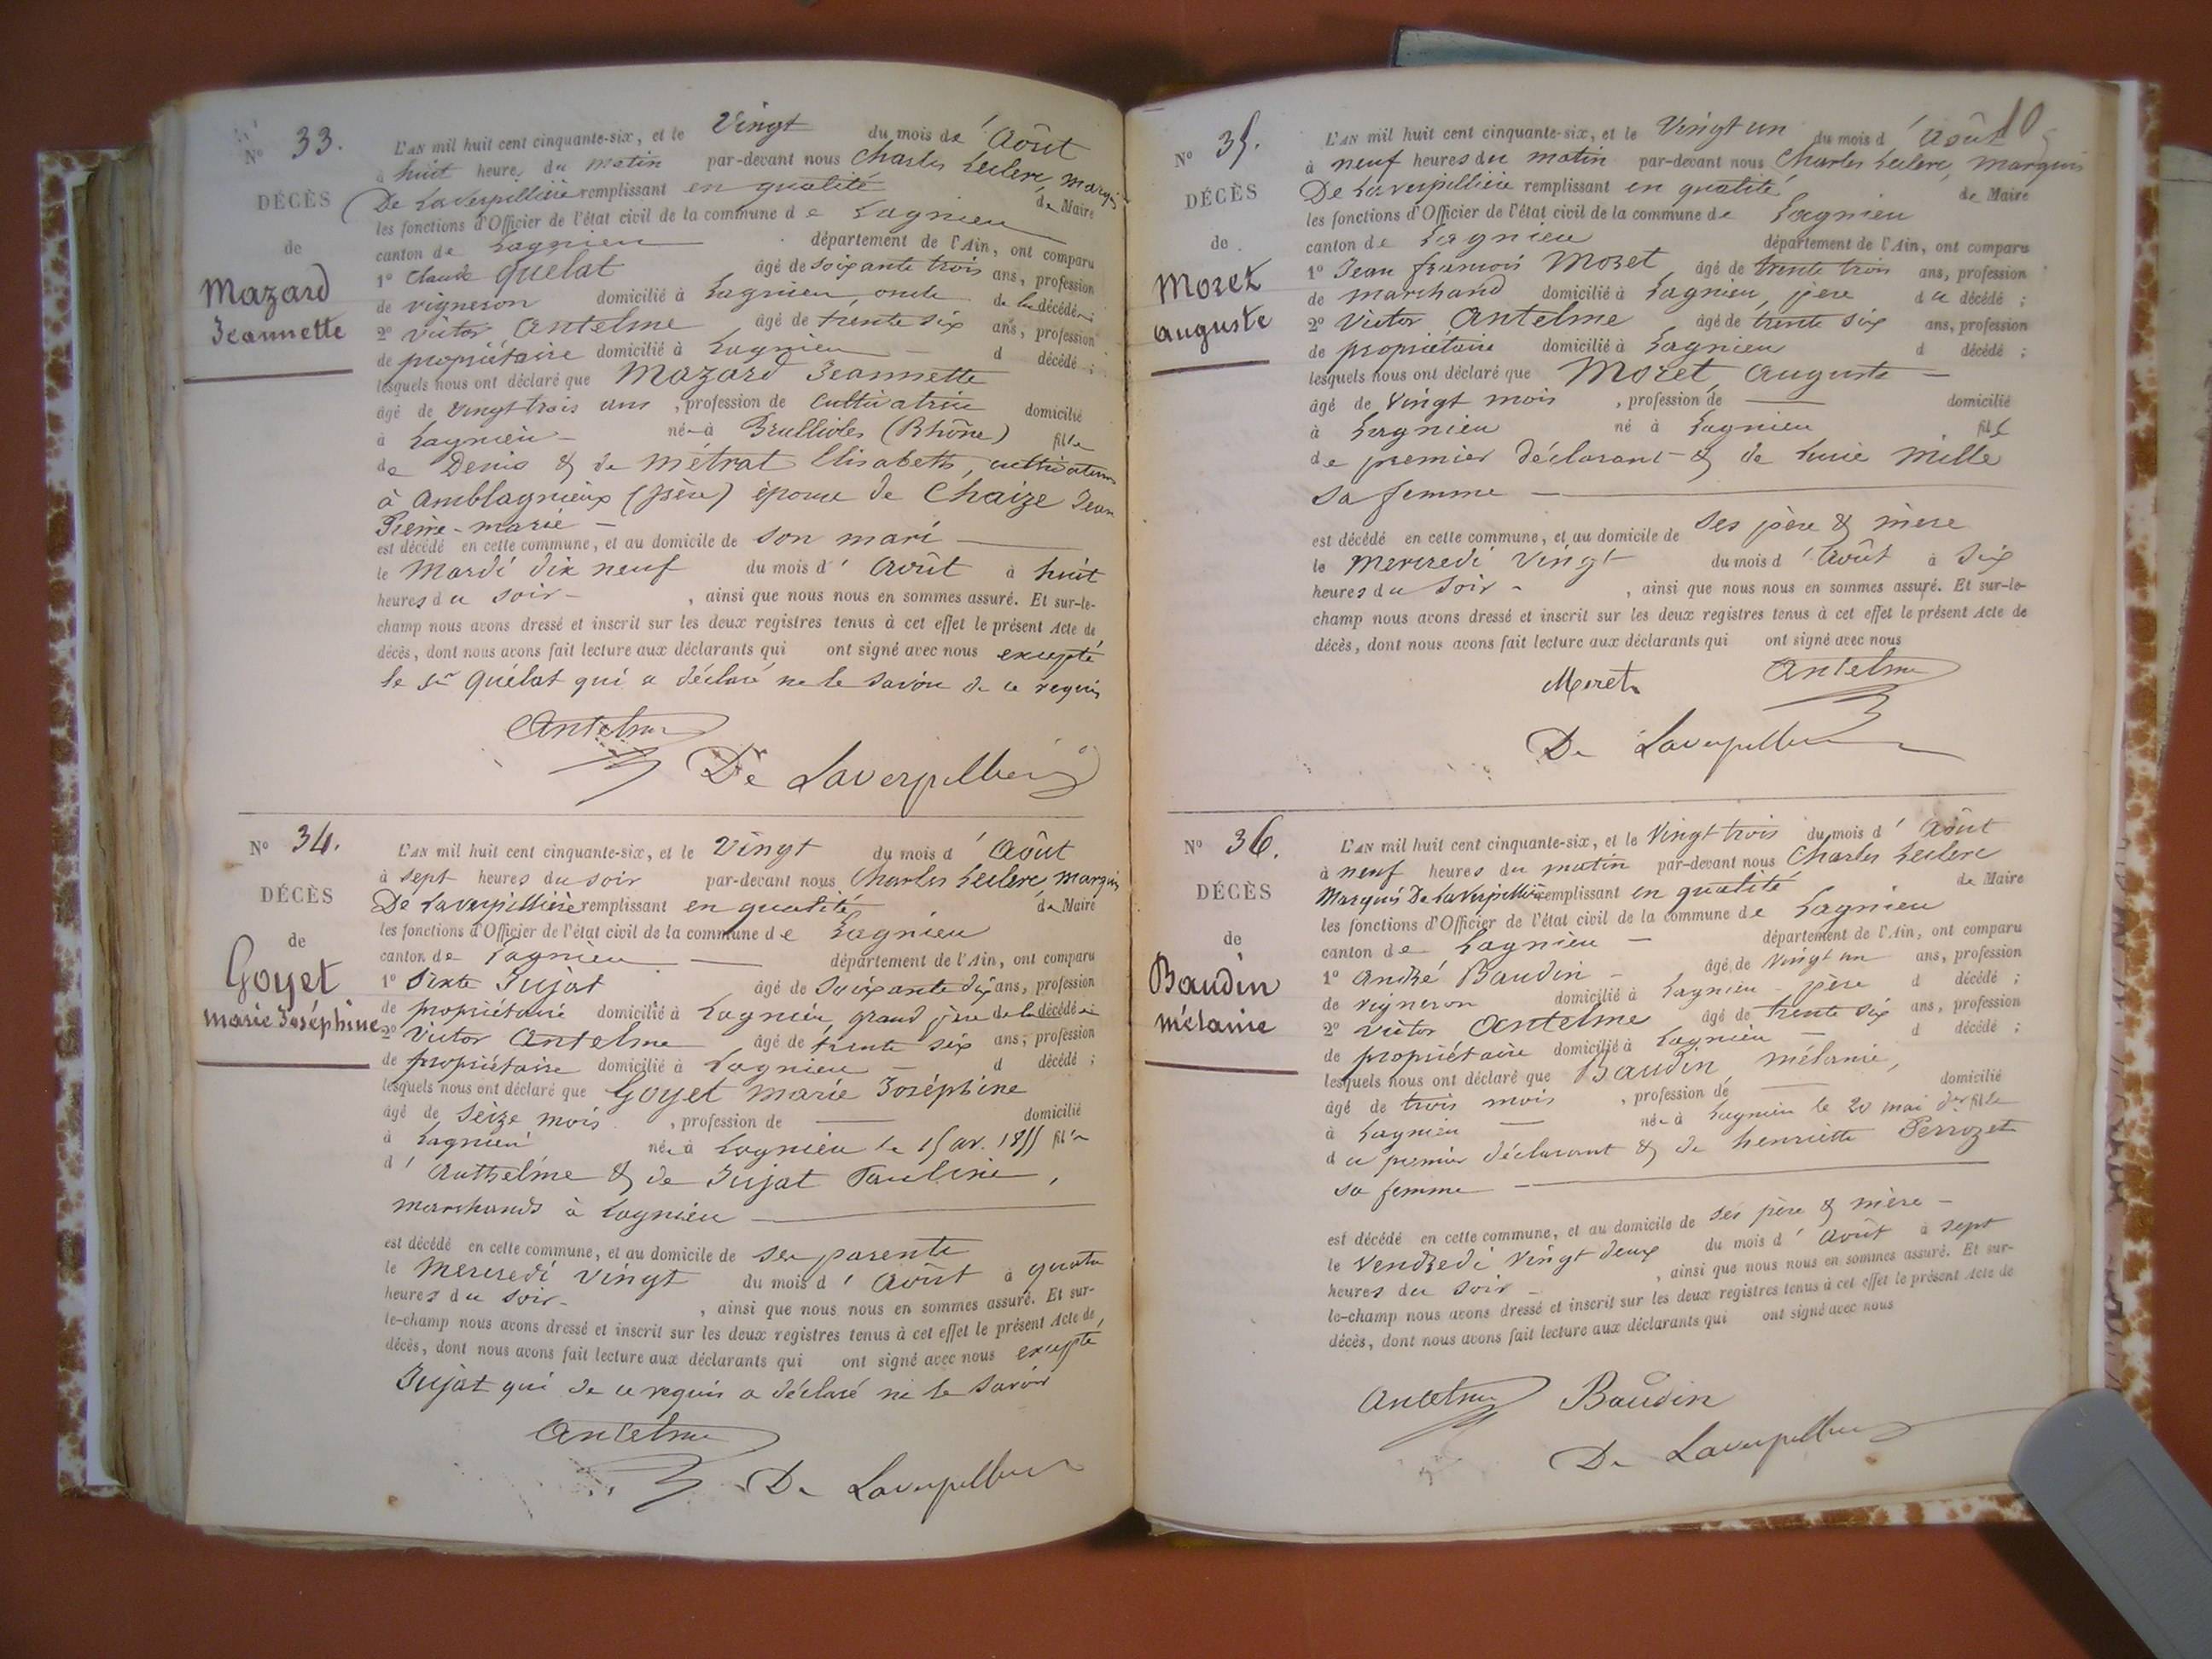 N° 33.
DÉCÈS
de
Mazard
Jeannette
L'AN mil huit cent cinquante-six, et le Vingt du mois de 'Août
à huit heures du matin par-devant nous Charles Leclerc, Marquis
De Laverpillière remplissant en qualité de Maire
les fonctions d'Officier de l'état civil de la commune de Lagnieu
canton de Lagnieu département de l'Ain, ont comparu
1° Claude Quélat âgé de soixante trois ans, profession
de vigneron domicilié à Lagnieu, oncle de la décédée;
2° Victor Antelme âgé de trente six ans, profession
de propriétaire domicilié à Lagnieu - d décédé ;
lesquels nous ont déclaré que Mazard Jeannette
âgé de vingt trois ans , profession de Cultivatrice domicilié
à Lagnieu - née à Brullioles (Rhône) fille
de Denis & de Métrat Elisabeth, cultivateurs
à Amblagnieux (Isère) épouse de Chaize Jean
Pierre-Marie -
est décédé en cette commune, et au domicile de son mari
le Mardi dix neuf du mois d' Août à huit
heures du soir - , ainsi que nous nous en sommes assuré. Et sur-le-
champ nous avons dressé et inscrit sur les deux registres tenus à cet effet le présent Acte de
décès, dont nous avons fait lecture aux déclarants qui ont signé avec nous excepté
le sr Quélat qui a déclaré ne le savoir de ce requis
Antelme
De Laverpillière
N° 34.
DÉCÈS
de
Goyet
Marie Joséphine
L'AN mil huit cent cinquante-six, et le Vingt du mois d 'Août
à sept heures du soir par-devant nous Charles Leclerc, Marquis
De Laverpillière remplissant en qualité de Maire
les fonctions d'Officier de l'état civil de la commune de Lagnieu
canton de Lagnieu département de l'Ain, ont comparu
1° Sixte Jujat âgé de soixante dix ans, profession
de propriétaire domicilié à Lagnieu, grand père de la décédée
2° Victor Antelme âgé de trente six ans, profession
de propriétaire domicilié à Lagnieu - d décédé ;
lesquels nous ont déclaré que Goyet Marie Joséphine
âgé de seize mois , profession de domicilié
à Lagnieu née à Lagnieu le 15 av. 1855 fille
d' Anthelme & de Jujat Pauline,
marchands à Lagnieu
est décédé en cette commune, et au domicile de ses parents
le Mercredi vingt du mois d 'Août à quatre
heures du soir - , ainsi que nous nous en sommes assuré. Et sur-
le-champ nous avons dressé et inscrit sur les deux registres tenus à cet effet le présent Acte de
décès, dont nous avons fait lecture aux déclarants qui ont signé avec nous excepté
Jujat qui de ce requis a déclaré ne le savoir
Antelme
De Laverpillière
10
N° 35.
DÉCÈS
de
Moret
Auguste
L'AN mil huit cent cinquante-six, et le Vingt un du mois d 'Août
à neuf heures du matin par-devant nous Charles Leclerc, Marquis
De Laverpillière remplissant en qualité de Maire
les fonctions d'Officier de l'état civil de la commune de Lagnieu
canton de Lagnieu département de l'Ain, ont comparu
1° Jean François Moret âgé de trente trois ans, profession
de marchand domicilié à Lagnieu, père du décédé ;
2° Victor Antelme âgé de trente six ans, profession
de propriétaire domicilié à Lagnieu d décédé ;
lesquels nous ont déclaré que Moret, Auguste -
âgé de vingt mois , profession de domicilié
à Lagnieu né à Lagnieu fils
de premier déclarant & de Lucie Mille
sa femme
est décédé en cette commune, et au domicile de ses père & mère
le Mercredi Vingt du mois d 'Août à six
heures du soir - , ainsi que nous nous en sommes assuré. Et sur-le-
champ nous avons dressé et inscrit sur les deux registres tenus à cet effet le présent Acte de
décès, dont nous avons fait lecture aux déclarants qui ont signé avec nous
Moret Antelme
De Laverpillière
N° 36.
DÉCÈS
de
Baudin
Mélanie
L'AN mil huit cent cinquante-six, et le Vingt trois du mois d' Août
à neuf heures du matin par-devant nous Charles Leclerc
Marquis De Laverpillière remplissant en qualité de Maire
les fonctions d'Officier de l'état civil de la commune de Lagnieu
canton de Lagnieu - département de l'Ain, ont comparu
1° André Baudin - âgé de vingt un ans, profession
de vigneron domicilié à Lagnieu - père d décédé ;
2° Victor Antelme âgé de trente six ans, profession
de propriétaire domicilié à Lagnieu d décédé ;
lesquels nous ont déclaré que Baudin, Mélanie,
âgé de trois mois , profession de domicilié
à Lagnieu née à Lagnieu le 20 mai der fille
du premier déclarant & de henriette Perrozet
sa femme
est décédé en cette commune, et au domicile de ses père & mère -
le Vendredi vingt deux du mois d' Août à sept
heures du soir - , ainsi que nous nous en sommes assuré. Et sur-
le-champ nous avons dressé et inscrit sur les deux registres tenus à cet effet le présent Acte de
décès, dont nous avons fait lecture aux déclarants qui ont signé avec nous
Antelme Baudin
De Laverpillière